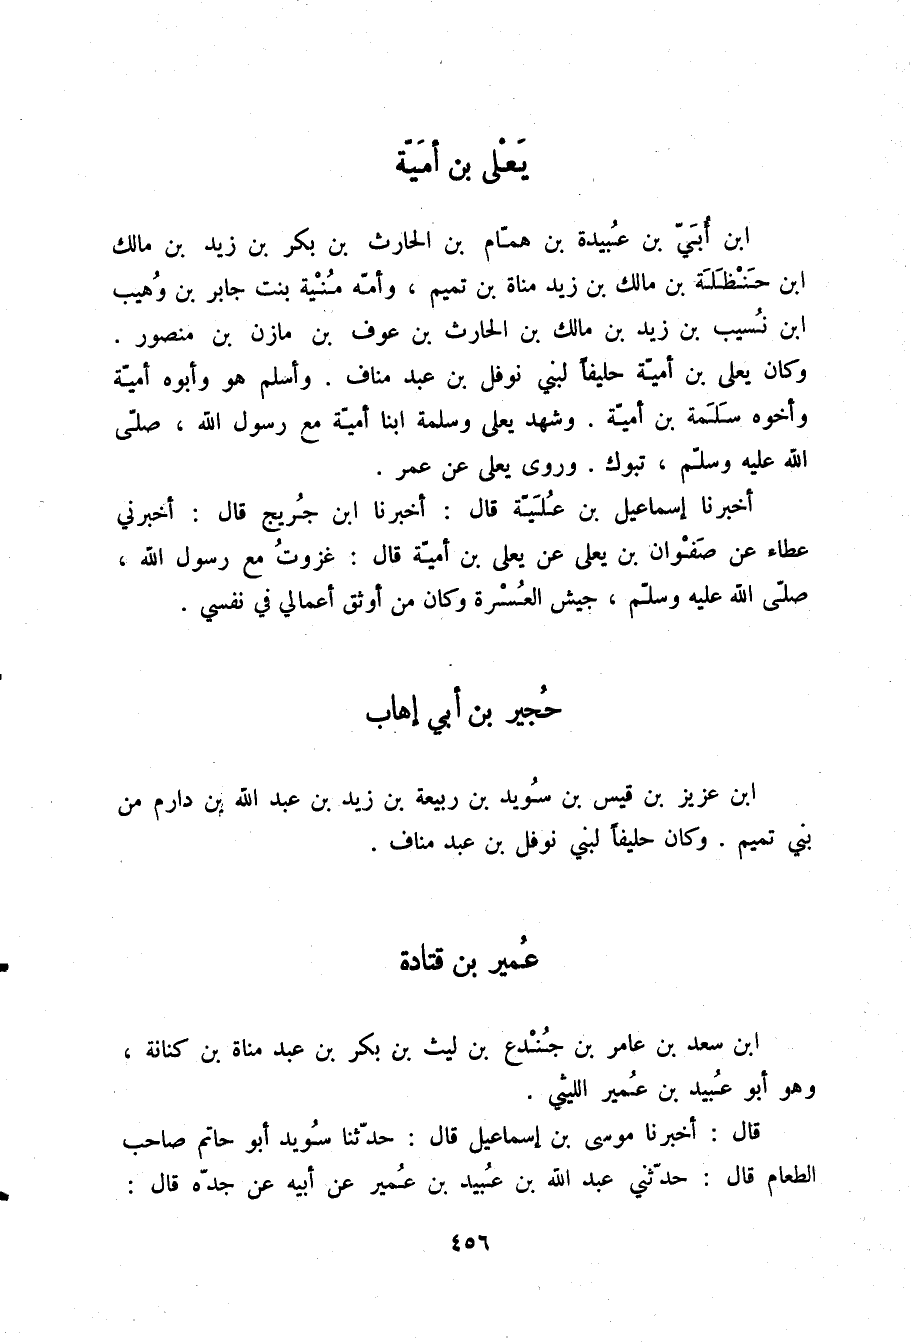 يَعْلى بن أمَيّة
ابن أُبَيّ بن عُبيدة بن همّام بن الحارث بن بكر بن زيد بن مالك
ابن حَنْظَلَة بن مالك بن زيد مناة بن تميم ، وأمّه مُنْية بنت جابر بن وُهيب
ابن نُسيب بن زيد بن مالك بن الحارث بن عوف بن مازن بن منصور .
وكان يعلى بن أميّة حليفاً لبني نوفل بن عبد مناف . وأسلم هو وأبوه أميّة
وأخوه سَلَمة بن أميّة . وشهد يعلى وسلمة ابنا أميّة مع رسول الله ، صلّى
الله عليه وسلّم ، تبوك . وروى يعلى عن عمر .
أخبرنا إسماعيل بن عُلَيّة قال : أخبرنا ابن جُريج قال : أخبرني
عطاء عن صَفْوان بن يعلى عن يعلى بن أميّة قال : غزوتُ مع رسول الله ،
صلّى الله عليه وسلّم ، جيش العُسْرة وكان من أوثق أعمالي في نفسي .
حُجير بن أبي إهاب
ابن عزيز بن قيس بن سُويد بن ربيعة بن زيد بن عبد الله بن دارم من
بني تميم . وكان حليفاً لبني نوفل بن عبد مناف .
عُمير بن قتادة
ابن سعد بن عامر بن جُنْدع بن ليث بن بكر بن عبد مناة بن كنانة ،
وهو أبو عُبيد بن عُمير الليثي .
قال : أخبرنا موسى بن إسماعيل قال : حدّثنا سُويد أبو حاتم صاحب
الطعام قال : حدّثني عبد الله بن عُبيد بن عُمير عن أبيه عن جدّه قال :
٤٥٦